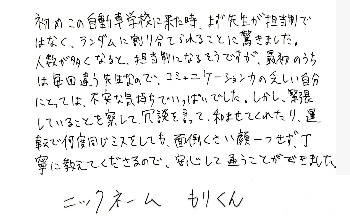 初めこの自動車学校に来た時、まず先生が担当制で
はなく、ランダムに割り分てられることに驚きました。
人数が多くなると、担当制になるそうですが、最初のうち
は毎回違う先生なので、コミュニケーション力の乏しい自分
にとっては、不安な気持ちでいっぱいでした。しかし、緊張
していることを察して、冗談を言って、和ませてくれたり、運
転で何度同じミスをしても、面倒くさい顔一つせず、丁
寧に教えてくださるので、安心して通うことができました。
ニックネーム もりくん